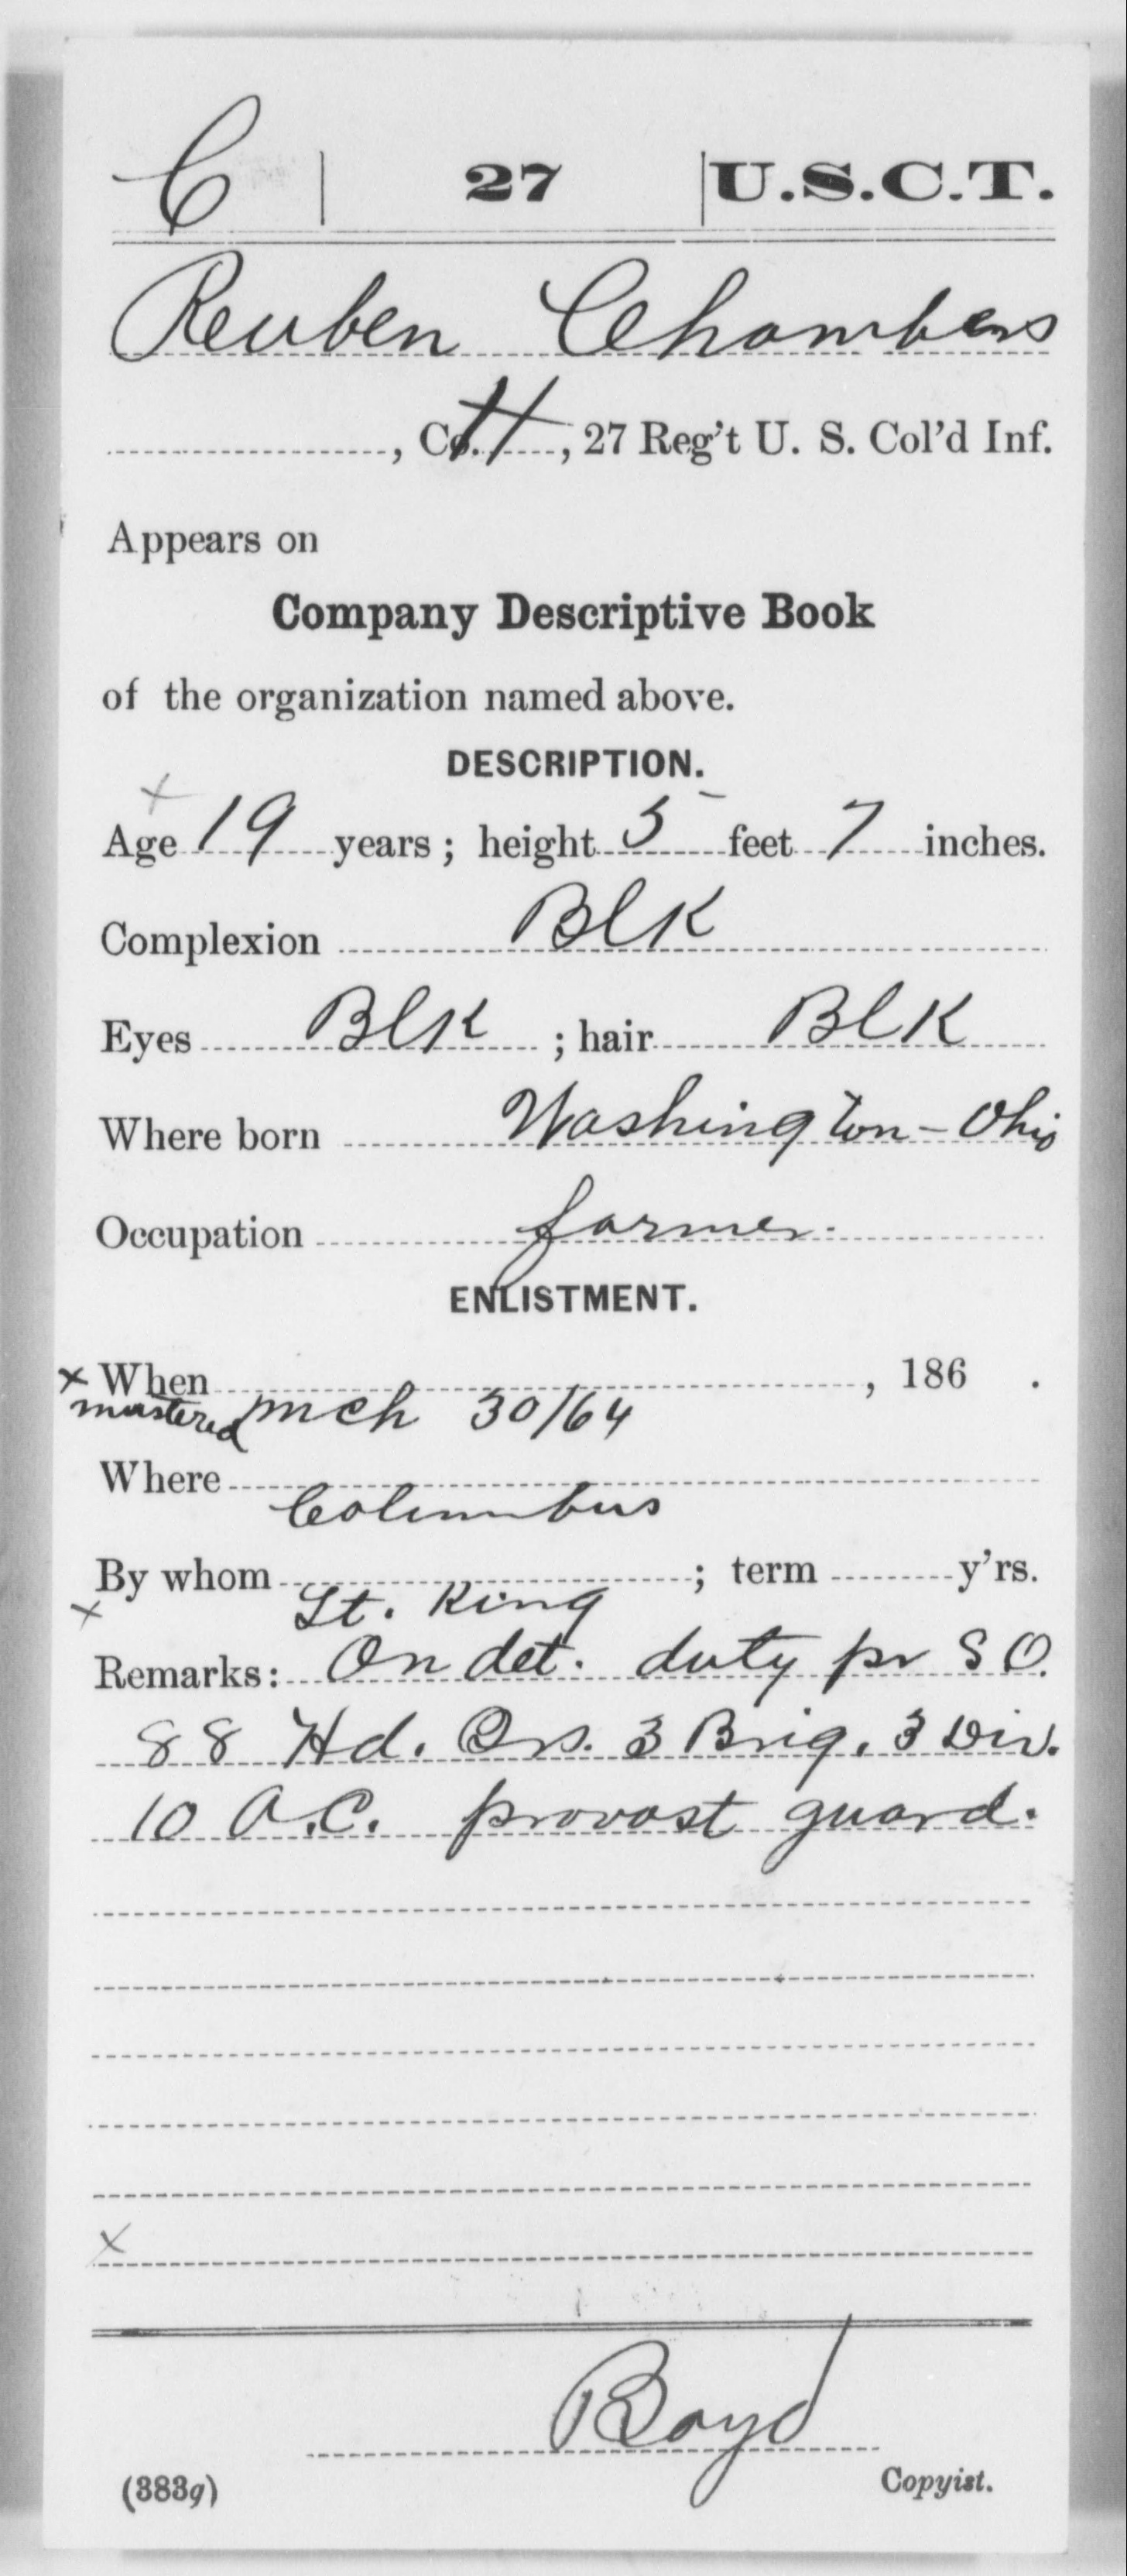 C | 27 | U.S.C.T.
Reuben Chambers
, Co. H, 27 Reg't U. S. Col'd Inf.
Appears on
Company Descriptive Book
of the organization named above.
DESCRIPTION.
x
Age 19 years; height 5 feet 7 inches.
Complexion Blk
Eyes Blk ; hair Blk
Where born Washington - Ohio
Occupation farmer.
ENLISTMENT.
x When , 186 .
mustered Mch 30/64
Where
Columbus
By whom ; term y'rs.
x Lt. King
Remarks: On det. duty pr S O.
88 Hd. Qrs. 3 Brig. 3 Div.
10 A.C. provost guard.
x
Boyd
(383g) Copyist.